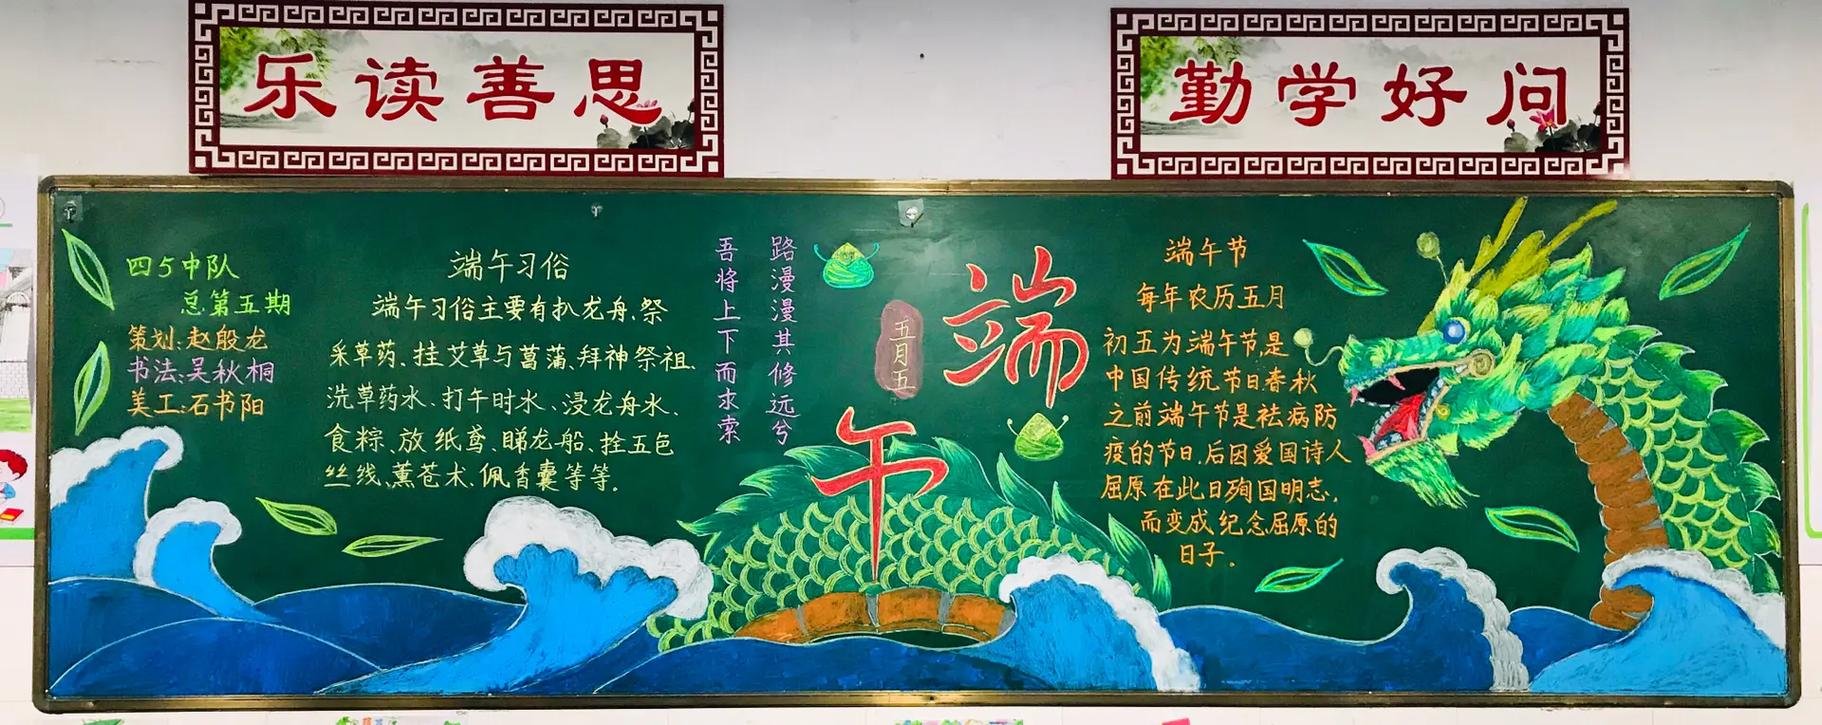 乐读善思
勤学好问
四5中队
总第五期
策划:赵殷龙
书法:吴秋桐
美工:石书阳
端午习俗
端午习俗主要有扒龙舟、祭
采草药、挂艾草与菖蒲、拜神祭祖、
洗草药水、打午时水、浸龙舟水、
食粽、放纸鸢、睇龙船、拴五色
丝线、薰苍术、佩香囊等等。
路漫漫其修远兮
吾将上下而求索
五月五
端
午
端午节
每年农历五月
初五为端午节,是
中国传统节日春秋
之前端午节是祛病防
疫的节日,后因爱国诗人
屈原在此日殉国明志,
而变成纪念屈原的
日子。